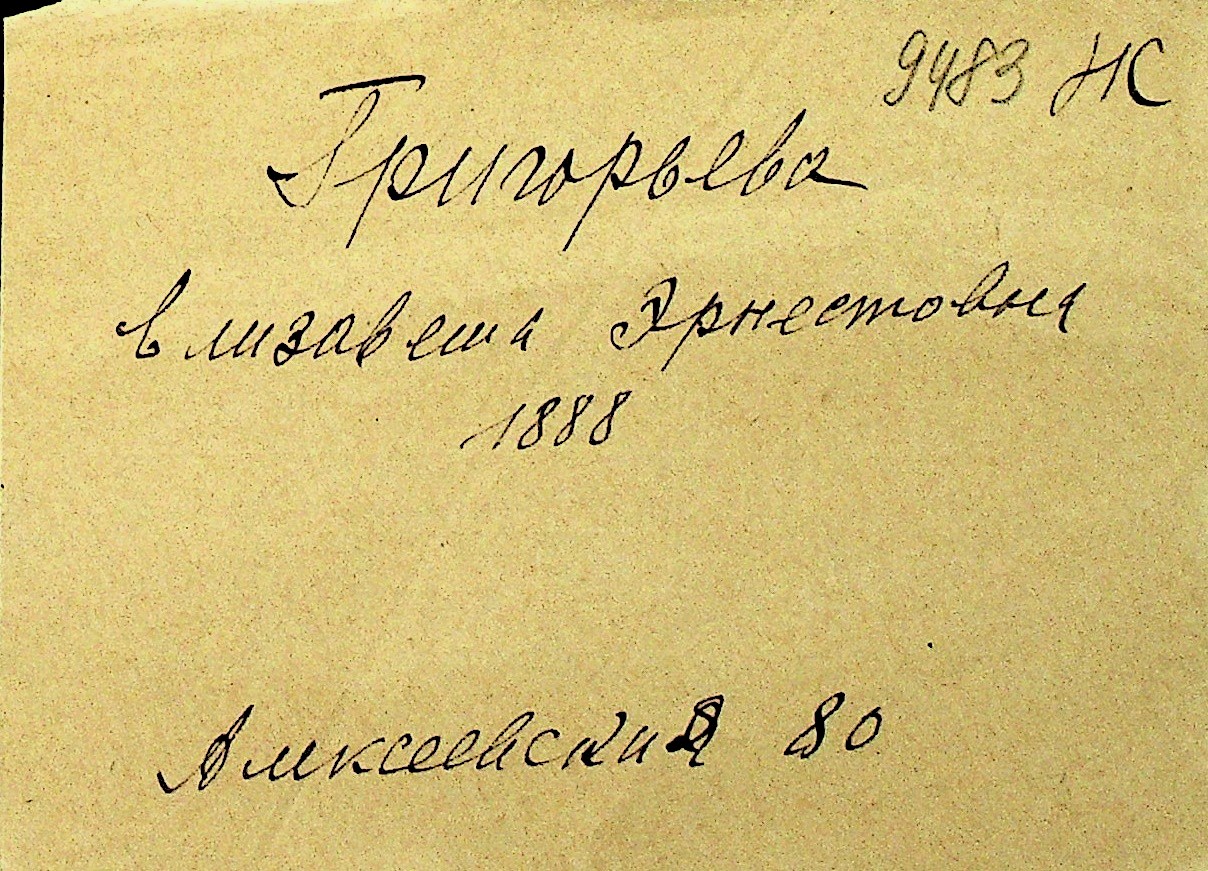 9483 НС
Григорьева
Елизавета Эрнестовна
1888
Алексеевский 80